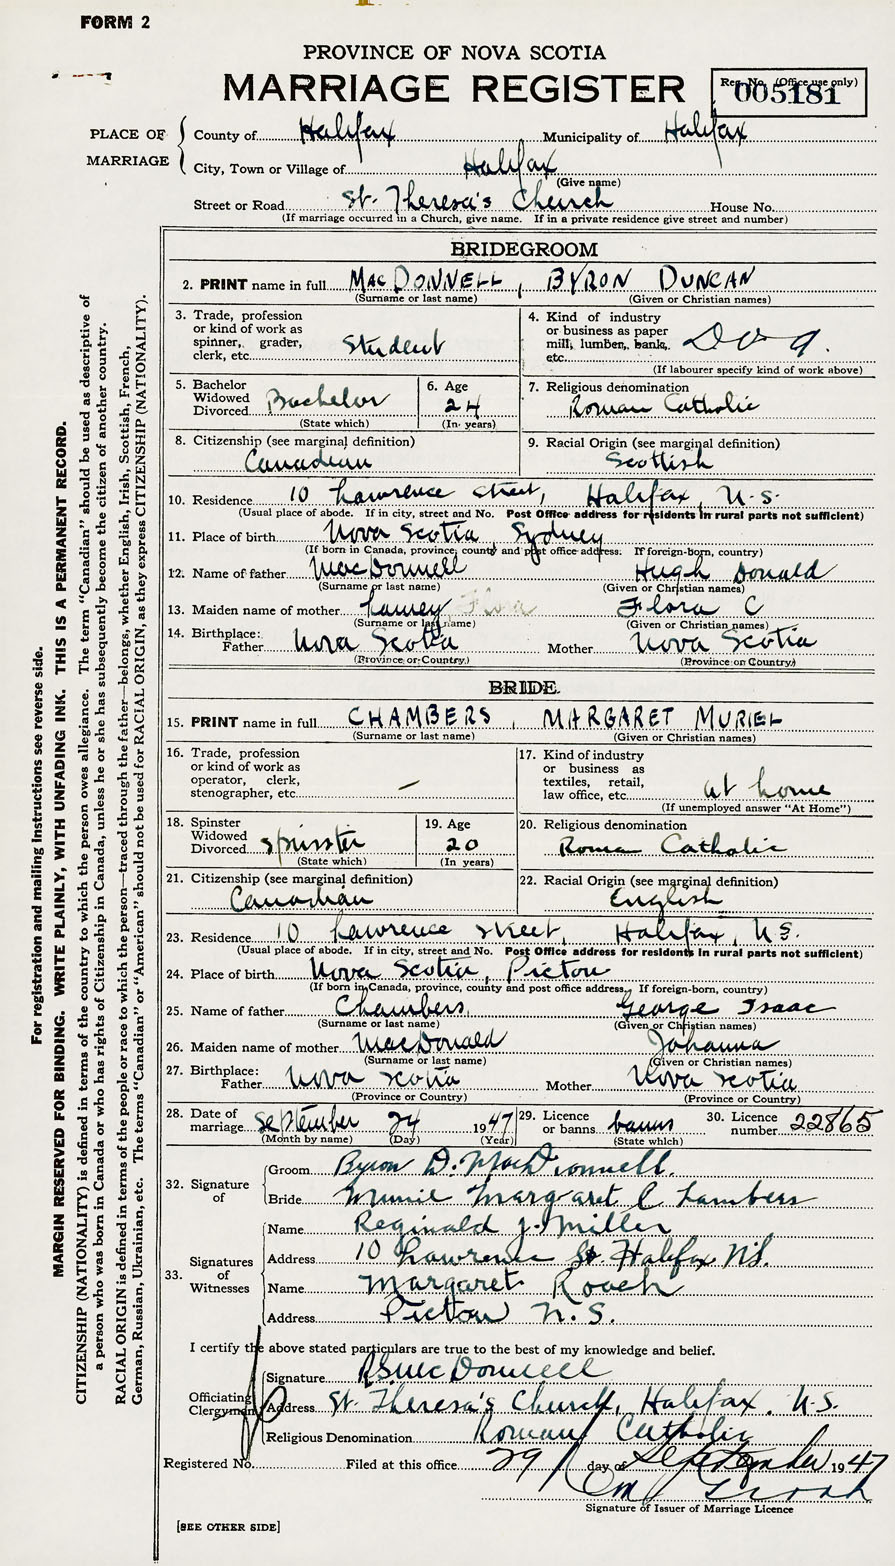 FORM 2
PROVINCE OF NOVA SCOTIA
MARRIAGE REGISTER
Reg. No. (Office use only)
005181
PLACE OF MARRIAGE
County of Halifax Municipality of Halifax
City, Town or Village of Halifax
(Give name)
Street or Road St. Theresa's Church House No.
(If marriage occurred in a Church, give name. If in a private residence give street and number)
BRIDEGROOM
2. PRINT name in full MACDONNELL, BYRON DUNCAN
(Surname or last name) (Given or Christian names)
3. Trade, profession or kind of work as spinner, grader, clerk, etc. Student
4. Kind of industry or business as paper mill, lumber, bank, etc.
(If labourer specify kind of work above)
5. Bachelor Widowed Divorced Bachelor
(State which)
6. Age 24
(In years)
7. Religious denomination
Roman Catholic
8. Citizenship (see marginal definition)
Canadian
9. Racial Origin (see marginal definition)
Scottish
10. Residence 10 Lawrence Street, Halifax, N.S.
(Usual place of abode. If in city, street and No. Post Office address for residents in rural parts not sufficient)
11. Place of birth Nova Scotia, Sydney
(If born in Canada, province, county and post office address. If foreign-born, country)
12. Name of father MacDonnell Hugh Donald
(Surname or last name) (Given or Christian names)
13. Maiden name of mother Flora C
(Surname or last name) (Given or Christian names)
14. Birthplace:
Father Nova Scotia Mother Nova Scotia
(Province or Country) (Province or Country)
BRIDE
15. PRINT name in full CHAMBERS, MARGARET MURIEL
(Surname or last name) (Given or Christian names)
16. Trade, profession or kind of work as operator, clerk, stenographer, etc. —
17. Kind of industry or business as textiles, retail, law office, etc. at home
(If unemployed answer "At Home")
18. Spinster Widowed Divorced Spinster
(State which)
19. Age 20
(In years)
20. Religious denomination
Roman Catholic
21. Citizenship (see marginal definition)
Canadian
22. Racial Origin (see marginal definition)
English
23. Residence 10 Lawrence Street, Halifax, N.S.
(Usual place of abode. If in city, street and No. Post Office address for residents in rural parts not sufficient)
24. Place of birth Nova Scotia, Pictou
(If born in Canada, province, county and post office address. If foreign-born, country)
25. Name of father Chambers, George Isaac
(Surname or last name) (Given or Christian names)
26. Maiden name of mother MacDonald Johanna
(Surname or last name) (Given or Christian names)
27. Birthplace:
Father Nova Scotia Mother Nova Scotia
(Province or Country) (Province or Country)
28. Date of marriage September 24 1947
(Month by name) (Day) (Year)
29. Licence or banns banns
(State which)
30. Licence number 22865
32. Signature of
Groom Byron D. MacDonnell.
Bride Margaret Chambers
33. Signatures of Witnesses
Name Reginald J. Miller
Address 10 Lawrence St. Halifax N.S.
Name Margaret Roach
Address Pictou N.S.
I certify the above stated particulars are true to the best of my knowledge and belief.
Officiating Clergyman
Signature
Address St. Theresa's Church, Halifax, N.S.
Religious Denomination Roman Catholic
Registered No. Filed at this office 29 day of September 1947
Signature of Issuer of Marriage Licence
[SEE OTHER SIDE]
For registration and mailing instructions see reverse side.
MARGIN RESERVED FOR BINDING. WRITE PLAINLY, WITH UNFADING INK. THIS IS A PERMANENT RECORD.
CITIZENSHIP (NATIONALITY) is defined in terms of the country to which the person owes allegiance. The term "Canadian" should be used as descriptive of
a person who was born in Canada or who has rights of Citizenship in Canada, unless he or she has subsequently become the citizen of another country.
RACIAL ORIGIN is defined in terms of the people or race to which the person—traced through the father—belongs, whether English, Irish, Scottish, French,
German, Russian, Ukrainian, etc. The terms "Canadian" or "American" should not be used for RACIAL ORIGIN, as they express CITIZENSHIP (NATIONALITY).